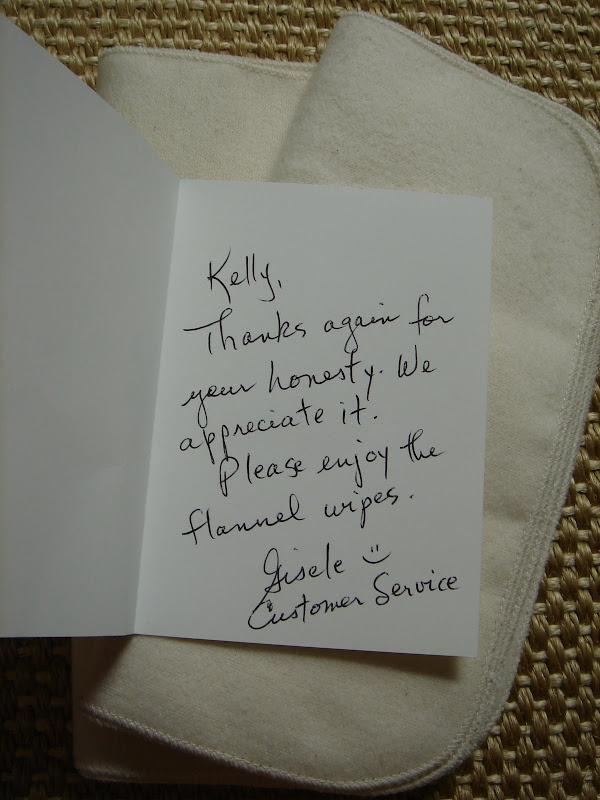 Kelly,
Thanks again for
your honesty. We
appreciate it.
Please enjoy the
flannel wipes.
Gisele :)
Customer Service